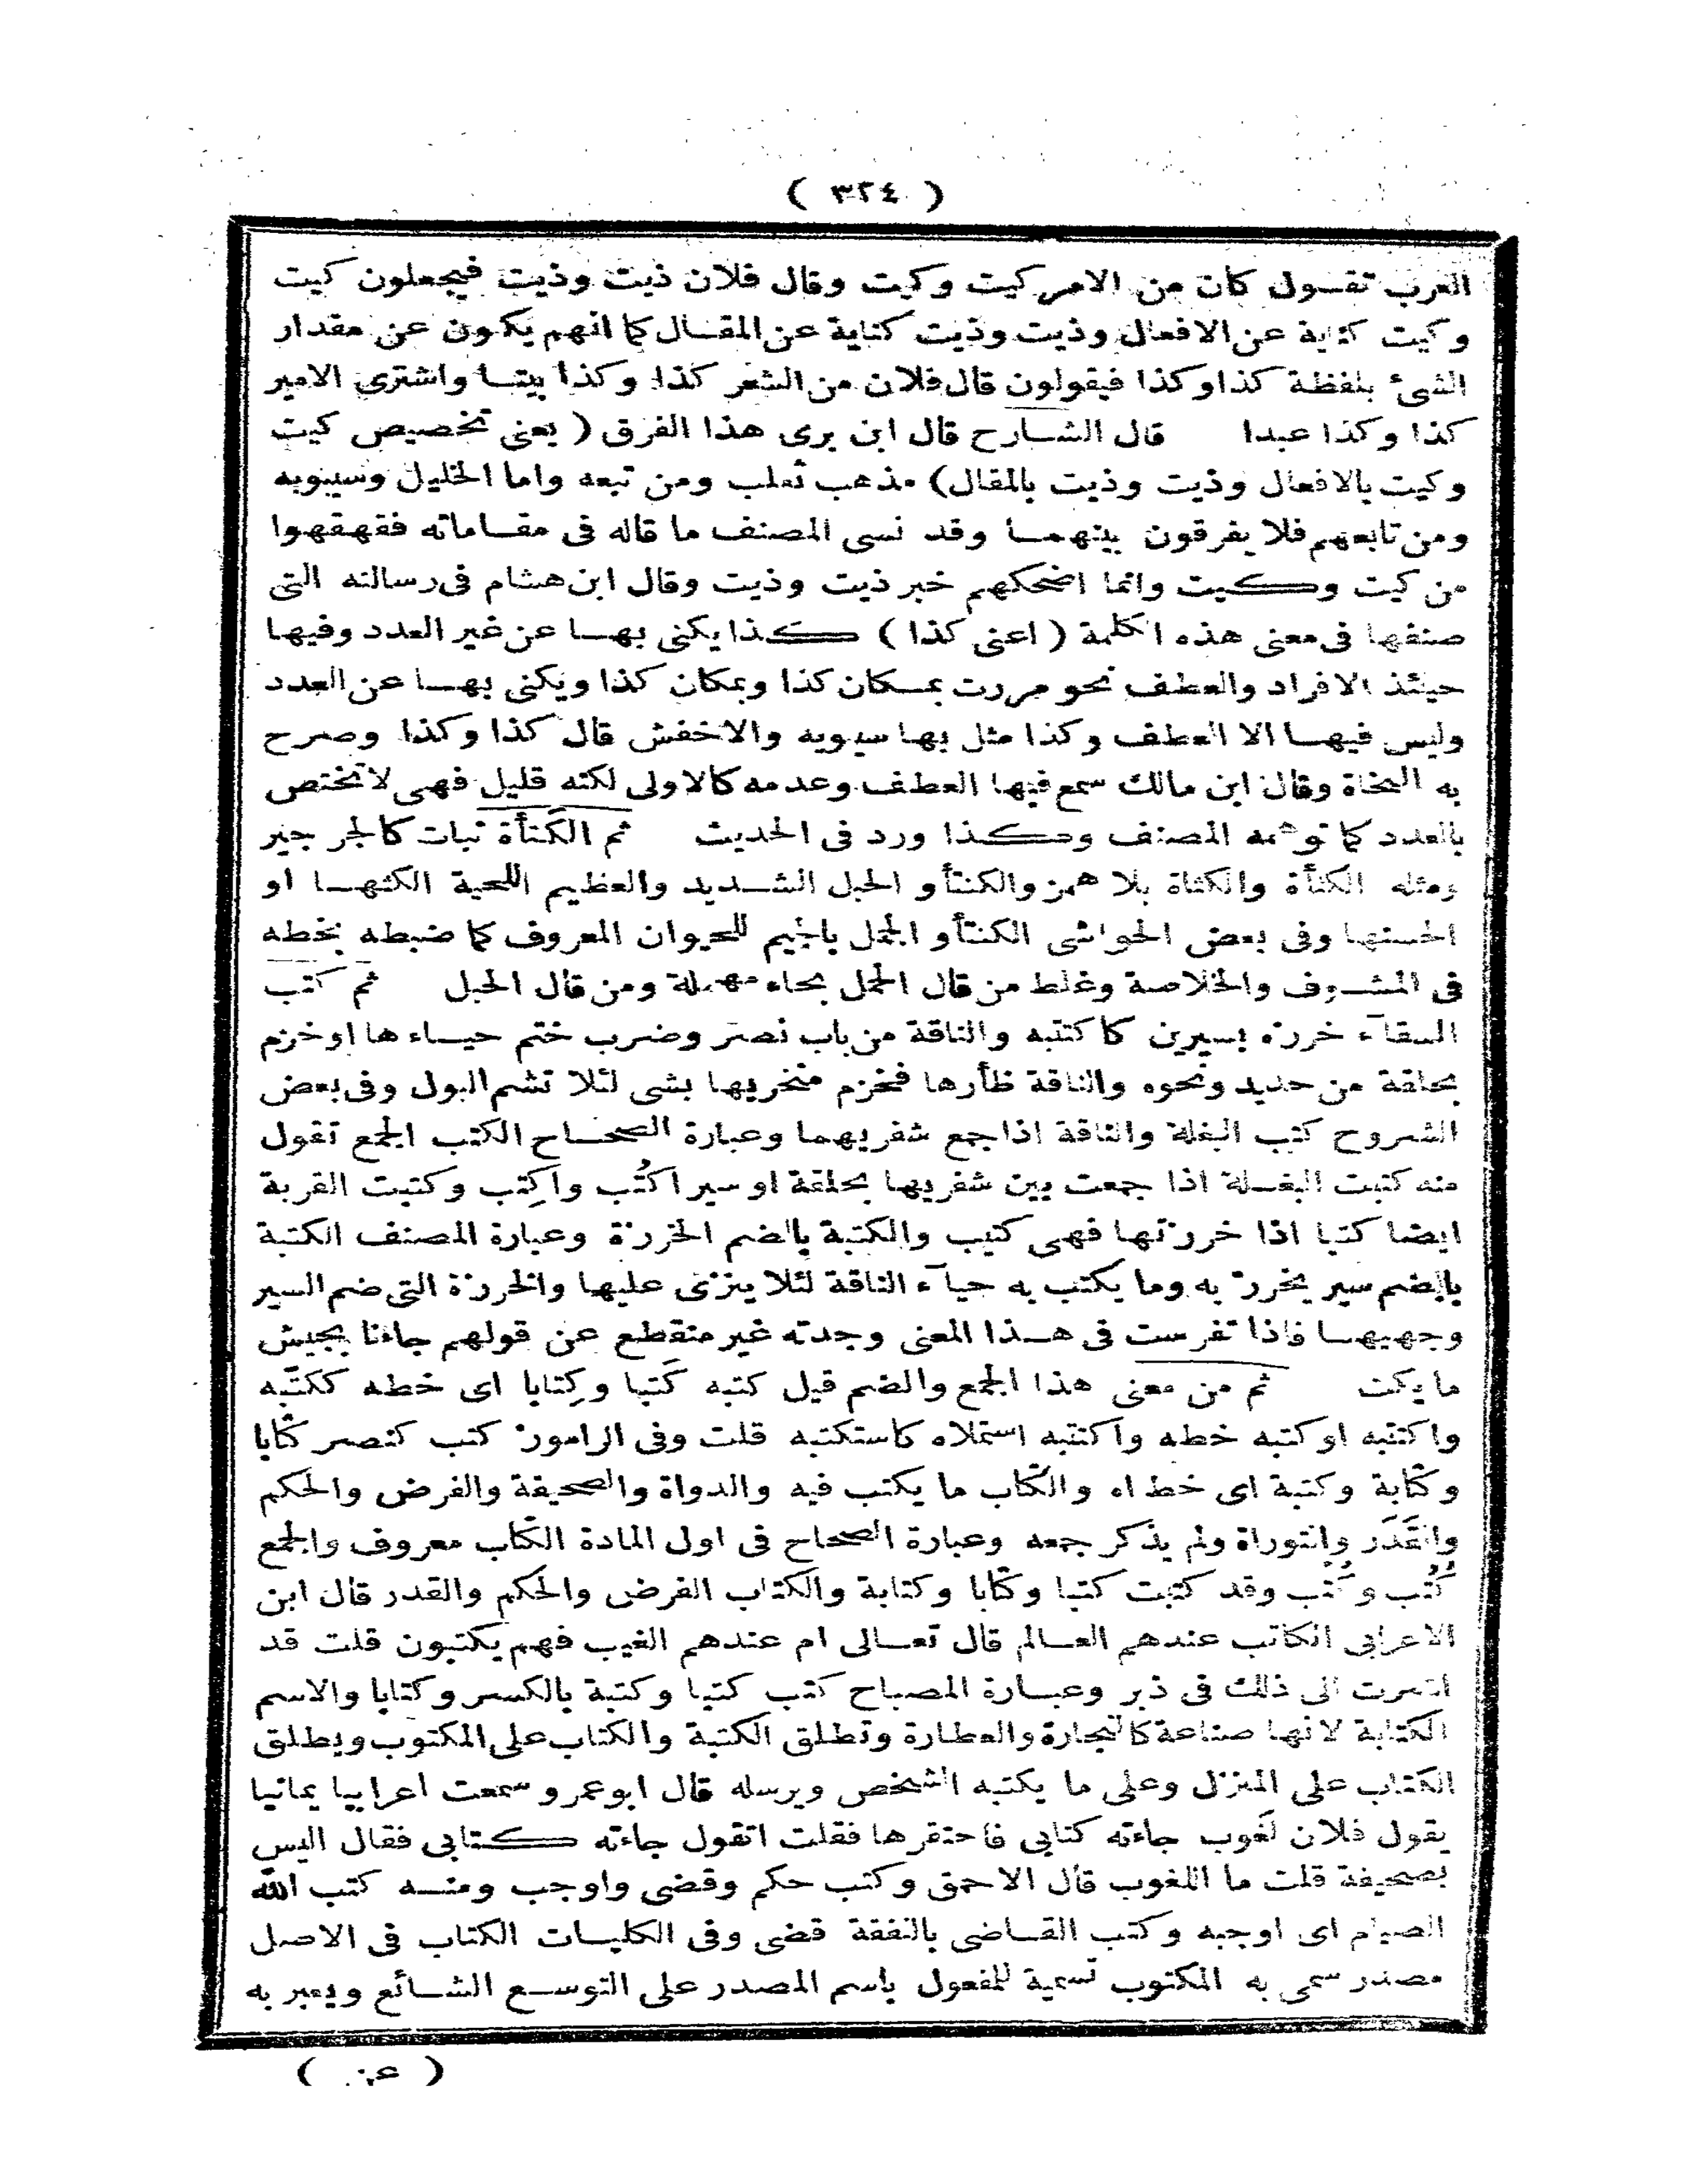 ( ٣٢٤ )
العرب تقول كان من الامر كيت وكيت وقال فلان ذيت وذيت فيجعلون كيت
وكيت كناية عن الافعال وذيت وذيت كناية عن المقال كما انهم يكنون عن مقدار
الشئ بلفظة كذا وكذا فيقولون قال فلان من الشعر كذا وكذا بيتا واشترى الامير
كذا وكذا عبدا قال الشارح قال ابن برى هذا الفرق ( يعنى تخصيص كيت
وكيت بالافعال وذيت وذيت بالمقال) مذهب ثعلب ومن تبعه واما الخليل وسيبويه
ومن تابعهم فلا يفرقون بينهما وقد نسى المصنف ما قاله فى مقاماته فقهقهوا
من كيت وكيت وانما اضحكهم خبر ذيت وذيت وقال ابن هشام فى رسالته التى
صنفها فى معنى هذه الكلمة ( اعنى كذا ) كذا يكنى بها عن غير العدد وفيها
حينئذ الافراد والعطف نحو مررت بمكان كذا وبمكان كذا ويكنى بها عن العدد
وليس فيها الا العطف وكذا مثل بها سيبويه والاخفش قال كذا وكذا وصرح
به النحاة وقال ابن مالك سمع فيها العطف وعدمه كالاولى لكنه قليل فهى لا تختص
بالعدد كما توهمه المصنف وهكذا ورد فى الحديث ثم الكَثأة نبات كالجرجير
ومثله الكثأة والكثاة بلا همز والكنثأو الحبل الشديد والعظيم اللحية الكثها او
الحسنها وفى بعض الحواشى الكنثأو الجمل بالجيم للحيوان المعروف كما ضبطه بخطه
فى المشوف والخلاصة وغلط من قال الحمل بحاء مهملة ومن قال الحبل ثم كتب
السقاء خرزه بسيرين كاكتتبه والناقة من باب نصر وضرب ختم حياء ها او خزم
بحلقة من حديد ونحوه والناقة ظأرها فخزم منخريها بشى لئلا تشم البول وفى بعض
الشروح كتب البغلة والناقة اذا جمع شفريهما وعبارة الصحاح الكتب الجمع تقول
منه كتبت البغلة اذا جمعت بين شفريها بحلقة او سير اكتُب واكتِب وكتبت القربة
ايضا كتبا اذا خرزتها فهى كتيب والكتبة بالضم الخرزة وعبارة المصنف الكتبة
بالضم سير يخرز به وما يكتب به حياء الناقة لئلا ينزى عليها والخرزة التى ضم السير
وجهيها فاذا تفرست فى هذا المعنى وجدته غير منقطع عن قولهم جاءنا بجيش
ما يكت ثم من معنى هذا الجمع والضم قيل كتبه كَتبا وكِتابا اى خطه ككتّبه
واكتتبه او كتبه خطه واكتتبه استملاه كاستكتبه قلت وفى الراموز كتب كنصر كتابا
وكتابة وكتبة اى خط اه والكتاب ما يكتب فيه والدواة والصحيفة والفرض والحكم
والقَدَر والتوراة ولم يذكر جمعه وعبارة الصحاح فى اول المادة الكتاب معروف والجمع
كُتُب وكُتْب وقد كتبت كتبا وكتابا وكتابة والكتاب الفرض والحكم والقدر قال ابن
الاعرابى الكاتب عندهم العالم قال تعالى ام عندهم الغيب فهم يكتبون قلت قد
اشرت الى ذلك فى ذبر وعبارة المصباح كتب كتبا وكتبة بالكسر وكتابا والاسم
الكتابة لانها صناعة كالنجارة والعطارة وتطلق الكتبة والكتاب على المكتوب ويطلق
الكتاب على المنزل وعلى ما يكتبه الشخص ويرسله قال ابو عمرو سمعت اعرابيا يمانيا
يقول فلان لَغوب جاءته كتابى فاحتقرها فقلت اتقول جاءته كتابى فقال اليس
بصحيفة قلت ما اللغوب قال الاحمق وكتب حكم وقضى واوجب ومنه كتب الله
الصيام اى اوجبه وكتب القاضى بالنفقة قضى وفى الكليات الكتاب فى الاصل
مصدر سمى به المكتوب تسمية للمفعول باسم المصدر على التوسع الشائع ويعبر به
( عن )